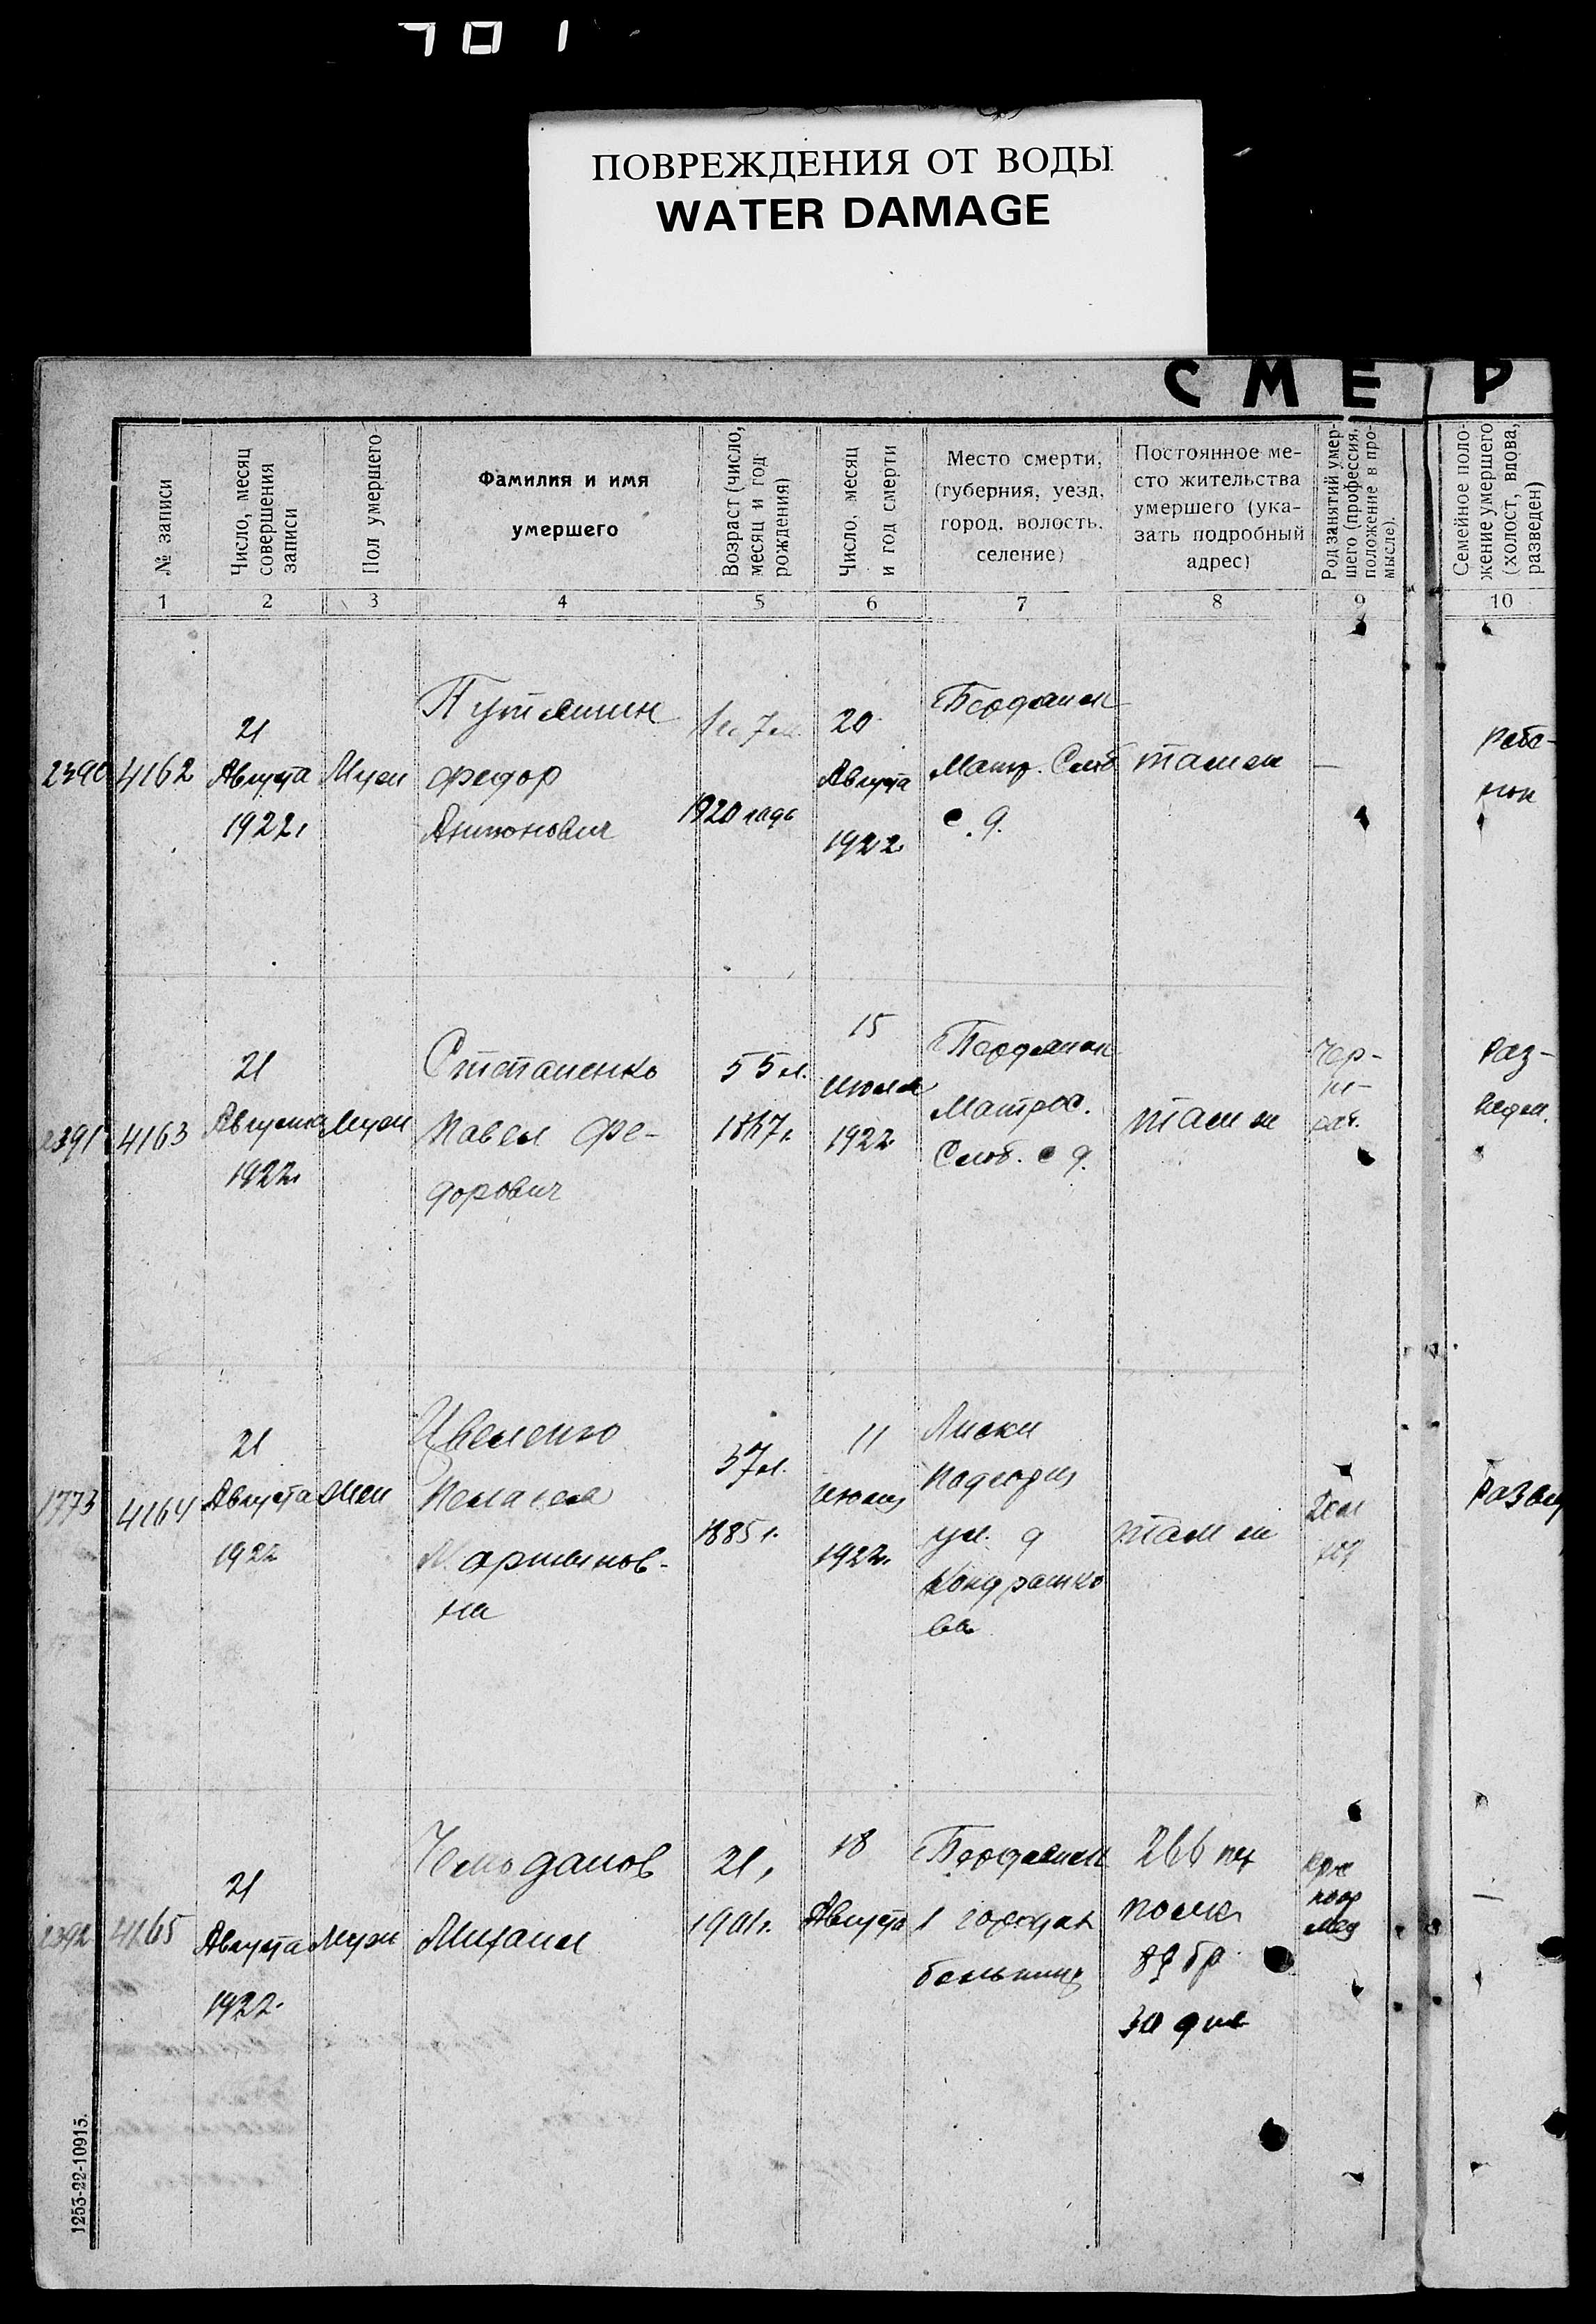 701
ПОВРЕЖДЕНИЯ ОТ ВОДЫ
WATER DAMAGE
СМЕР
№ записи
Число, месяц
совершения
записи
Пол умершего
Фамилия и имя
умершего
Возраст (число,
месяц и год
рождения)
Число, месяц
и год смерти
Место смерти,
(губерния, уезд,
город, волость,
селение)
Постоянное ме-
сто жительства
умершего (ука-
зать подробный
адрес)
Род занятий умер-
шего (профессия,
положение в про-
мысле).
Семейное поло-
жение умершего
(холост, вдова,
разведен)
1 2 3 4 5 6 7 8 9 10
2390 4162
21
Августа
1922г
Муж
Путятин
Федор
Антонович
1 г. 7 м.
1920 года
20
Августа
1922
Бердянск
Матр. Слоб
с. д.
там ж
—
ребе-
нок
2391 4163
21
Августа
1922г
Муж
Степаненко
Павел Фе-
дорович
55 л.
1867г.
15
июля
1922
Бердянск
Матрос.
Слоб. с д.
там ж
Чер-
но-
раб.
1773 4164
21
Августа
1922
Жен
Пелагея
Мартынов-
на
37 л.
1885 г.
11
1922г.
Лиски
ул. д
Кондрашко
ва
там ж
2392 4165
21
Августа
1922.
Муж
Чемоданов
Михаил
21,
1901г.
18
Августа
Бердянск
1 городск
больниц
266 пех
полка
89 бр
30 див
—
1253-22-10915.